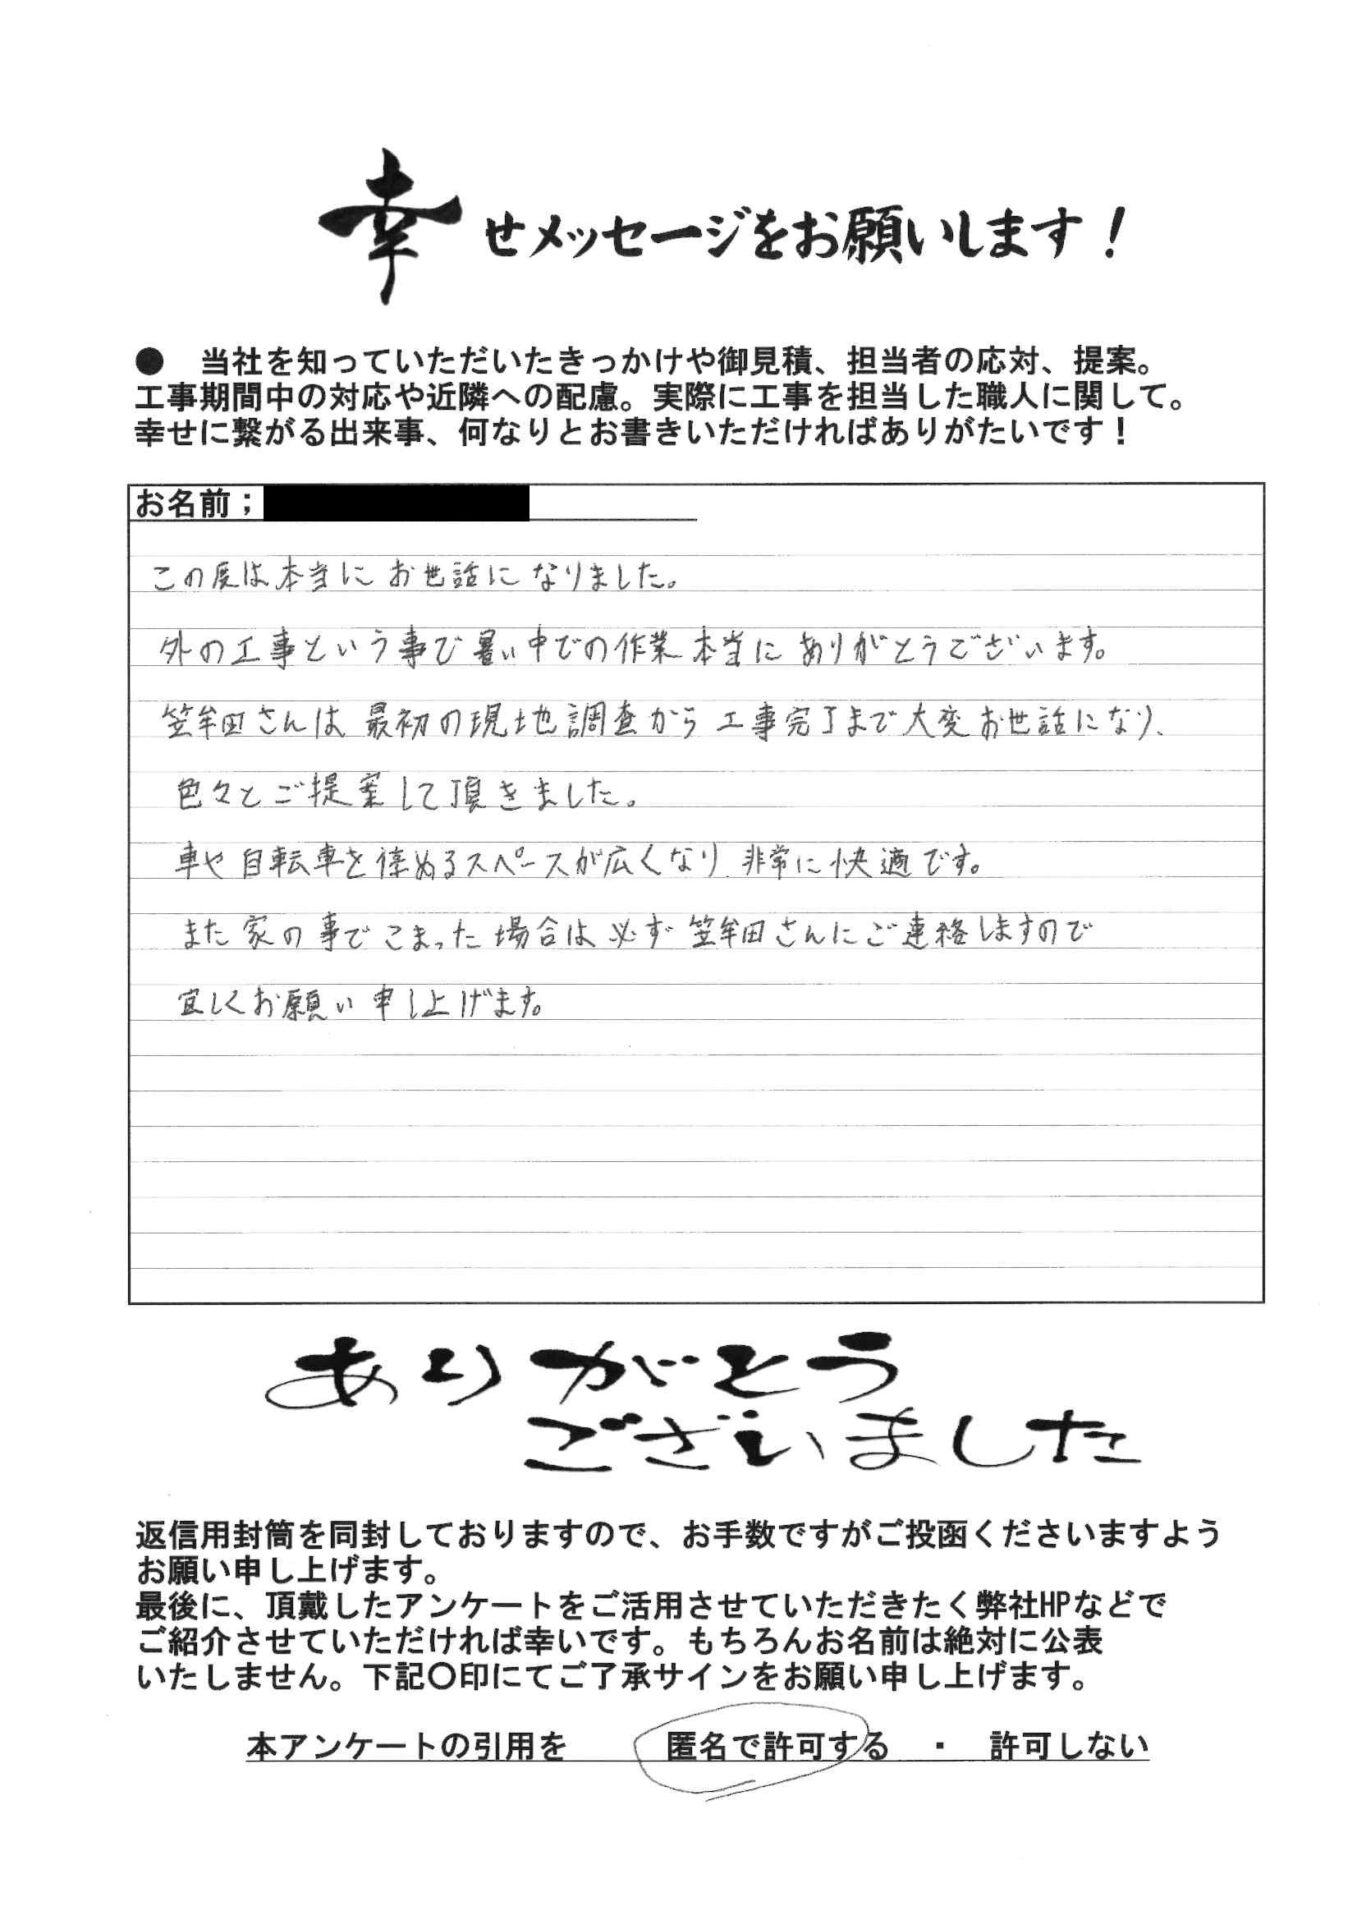 幸せメッセージをお願いします！
● 当社を知っていただいたきっかけや御見積、担当者の応対、提案。
工事期間中の対応や近隣への配慮。実際に工事を担当した職人に関して。
幸せに繋がる出来事、何なりとお書きいただければありがたいです！
お名前；
この度は本当にお世話になりました。
外の工事という事で暑い中での作業本当にありがとうございます。
笠牟田さんは最初の現地調査から工事完了まで大変お世話になり、
色々とご提案して頂きました。
車や自転車を停めるスペースが広くなり非常に快適です。
また家の事でこまった場合は必ず笠牟田さんにご連絡しますので
宜しくお願い申し上げます。
ありがとう
ございました
返信用封筒を同封しておりますので、お手数ですがご投函くださいますよう
お願い申し上げます。
最後に、頂戴したアンケートをご活用させていただきたく弊社HPなどで
ご紹介させていただければ幸いです。もちろんお名前は絶対に公表
いたしません。下記〇印にてご了承サインをお願い申し上げます。
本アンケートの引用を 匿名で許可する ・ 許可しない